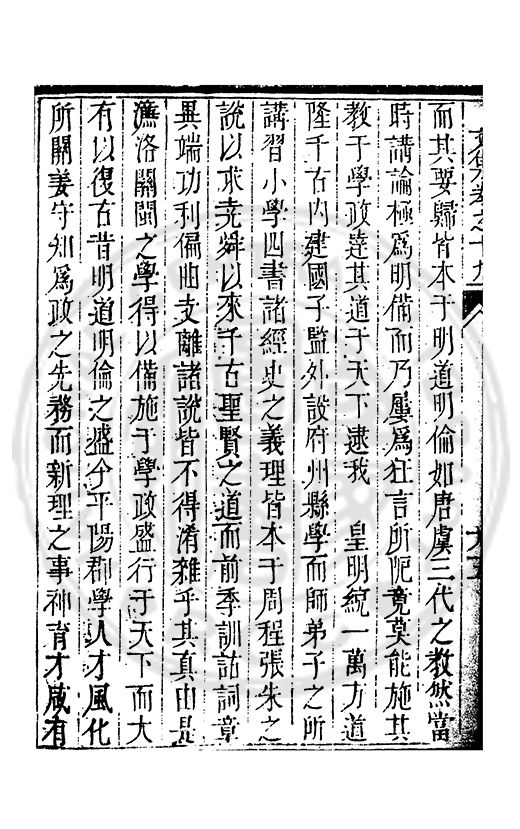 而其要歸皆本于明道明倫如唐虞三代之教然當
時講論極爲明備而乃屢爲狂言所怩竟莫能施其
教于學政達其道于天下逮我　皇明統一萬方道
隆千古内建國子監外設府州縣學而師弟子之所
講習小學四書諸經史之義理皆本于周程張朱之
說以求堯舜以來千古聖賢之道而前季訓詁詞章
異端功利偏曲支離諸說皆不得淆雜乎其真由是
濂洛關閩之學得以備施于學政盛行于天下而大
有以復古昔明道明倫之盛今平陽郡學人才風化
所關姜守知爲政之先務而新理之事神育才咸有